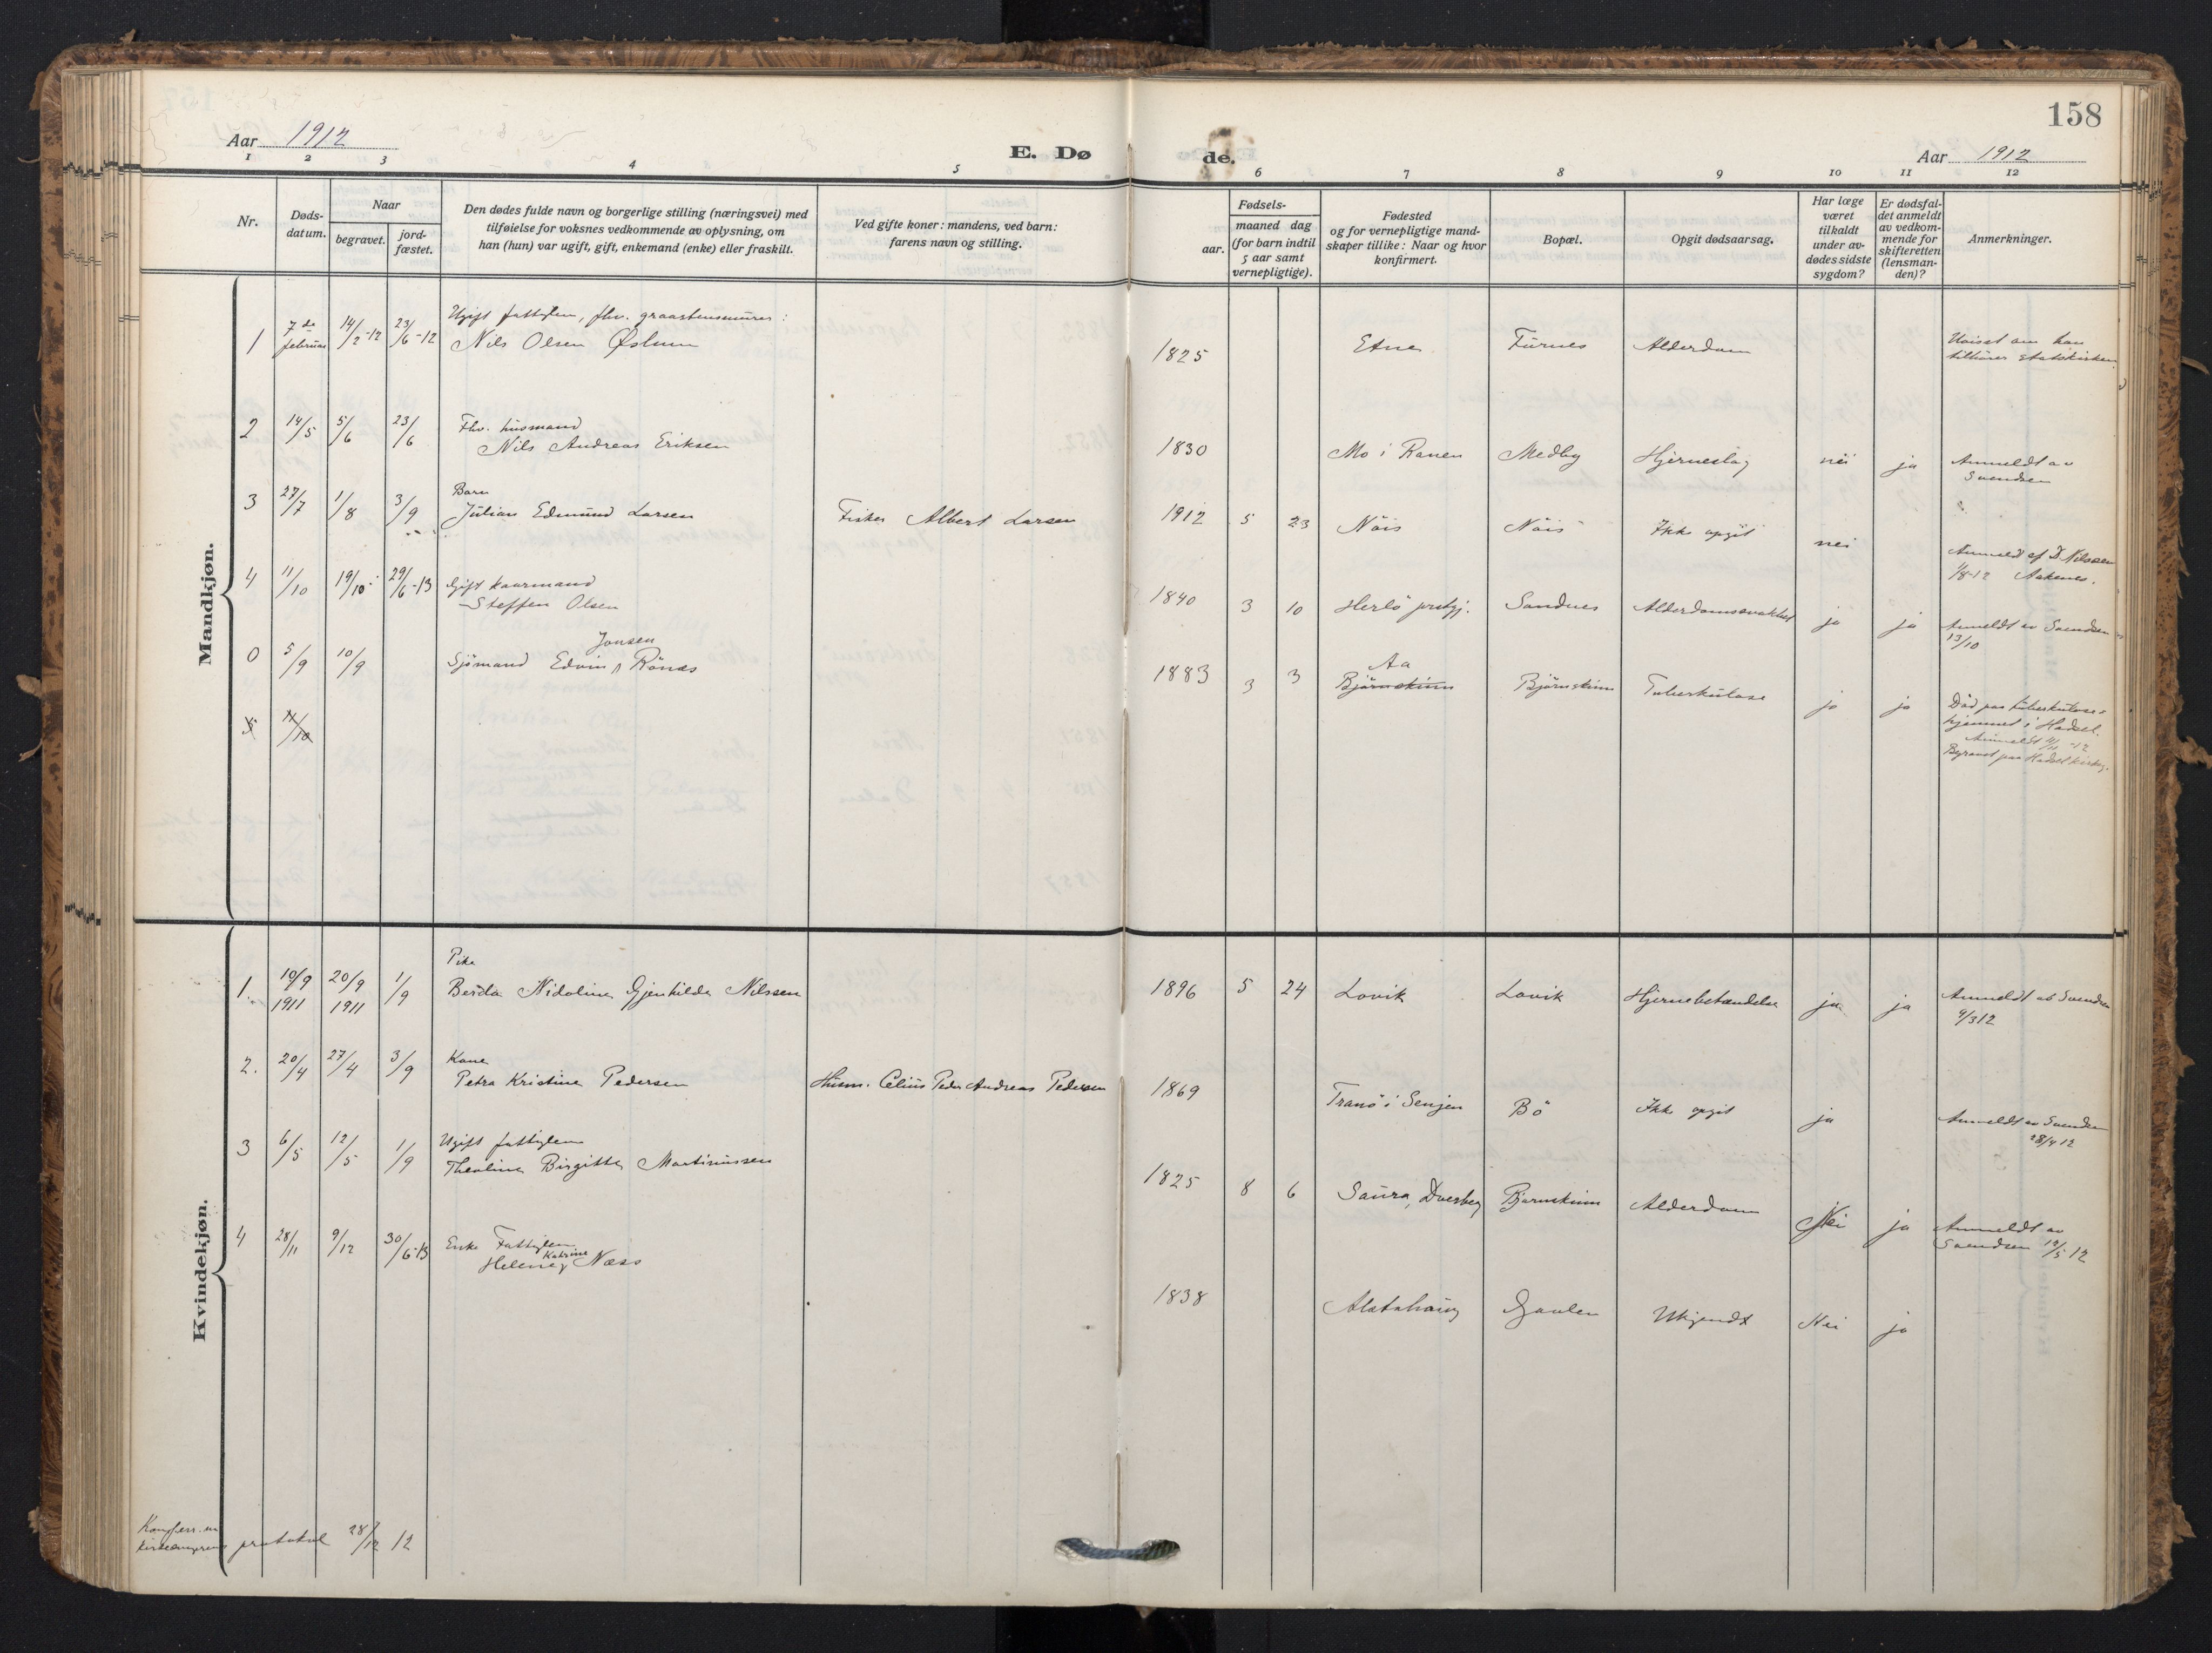 158
Aar 1912
E. Døde.
Aar 1912
1 2 3 4 5 6 7 8 9 10 11 12
Nr.
Døds-datum.
Naar
begravet.
jord-fæstet.
Den dødes fulde navn og borgerlige stilling (næringsvei) med
tilføielse for voksnes vedkommende av oplysning, om
han (hun) var ugift, gift, enkemand (enke) eller fraskilt.
Ved gifte koner: mandens, ved barn:
farens navn og stilling.
Fødsels-
aar.
maaned dag
(for barn indtil
5 aar samt
vernepligtige).
Fødested
og for vernepligtige mand-
skaper tillike: Naar og hvor
konfirmert.
Bopæl.
Opgit dødsaarsag.
Har læge
været
tilkaldt
under av-
dødes sidste
sygdom?
Er dødsfal-
det anmeldt
av vedkom-
mende for
skifteretten
(lensman-
den)?
Anmerkninger.
Mandkjøn.
Ugift fattiglem, fhv. graastensmurer:
1 7de februar 14/2-12 23/6-12 Nils Olsen Øslun 1825 Etne Furnes Alderdom Uvisst om han
tilhører statskirken
Fhv. husmand
2 14/5 5/6 23/6 Nils Andreas Eriksen 1830 Mo i Ranen Medby Hjerneslag nei ja Anmeldt av
Svendsen
Barn
3 27/7 1/8 3/9 Julian Edmund Larsen Fisker Albert Larsen 1912 5 23 Nöis Nöis Ikke opgit nei Anmeld af D. Nilssen
1/8-12 Aakenes.
4 11/10 19/10 29/6-13 Gift kaarmand
Steffen Olsen 1840 3 10 Herlö prstgj. Sandnes Alderdomssvakhet ja ja Anmeldt av Svendsen
13/10
Jonsen
0 5/9 10/9 Sjömand Edvin Rönes 1883 3 3 Aa
Björnskinn Björnskinn Tuberkulose ja ja Död paa tuberkulose-
hjemmet i Hadsel.
Anmeldt 11/11-12
Begravet paa Hadsel kirkeg.
5 11/10
Kvindekjøn.
Pike
1. 10/9 1911 20/9 1911 1/9 Berda Nidoline Gjenhilde Nilssen 1896 5 24 Lovik Lovik Hjernebetændelse ja ja Anmeldt ab Svendsen
9/3 12
Kone
2. 20/4 27/4 3/9 Petra Kristine Pedersen Husm. Celius Peder Andreas Pedersen 1869 Tranö i Senjen Bö Ikke opgit ja Anmeldt av Svendsen
28/4 12
Ugift fattiglem
3 6/5 12/5 1/9 Theoline Birgitte Martinussen 1825 8 6 Saura, Dverberg Bjørnskinn Alderdom Nei ja Anmeldt av
Svendsen 12/5 12
4 28/11 9/12 30/6-13 Enke Fattiglem
Helene Katrine Næss 1838 Alstahaug Gavlen Ukjendt Nei ja
Konfer. m
kirkesangerens protokol 28/12 12